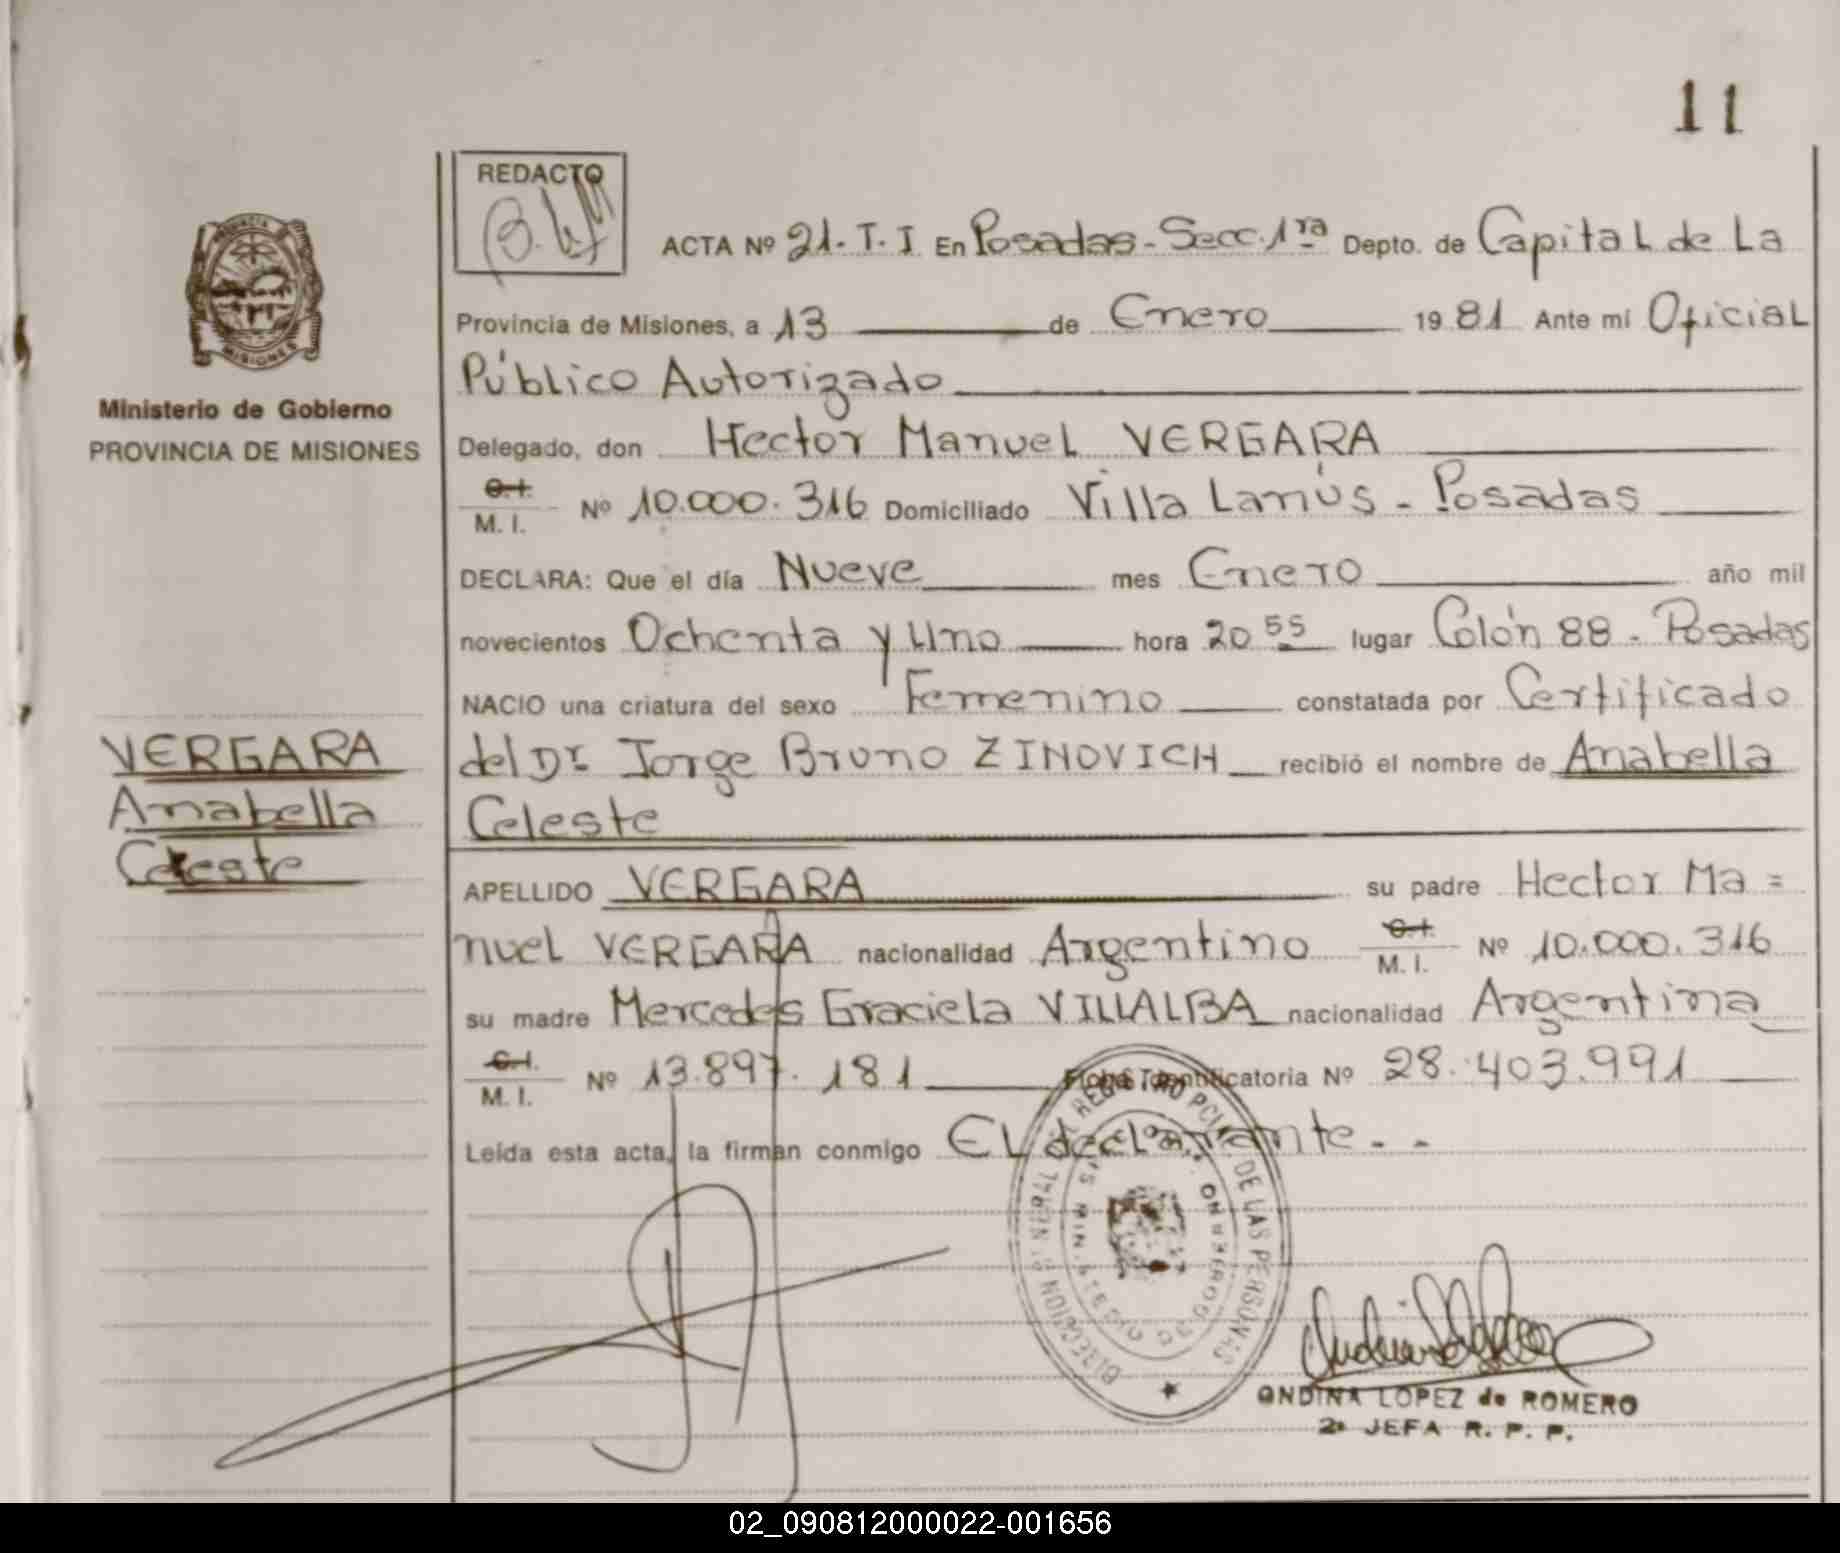 11
REDACTO
ACTA Nº 21. T. I En Posadas - Secc. 1ra Depto. de Capital de La
Provincia de Misiones, a 13 de Enero 19 81 Ante mi Oficial
Público Autorizado
Ministerio de Gobierno
PROVINCIA DE MISIONES
Delegado, don Hector Manuel VERGARA
C.I.
M. I. Nº 10.000.316 Domiciliado Villa Lanús - Posadas
DECLARA: Que el día Nueve mes Enero año mil
novecientos Ochenta y Uno hora 20 55 lugar Colón 88 - Posadas
NACIO una criatura del sexo Femenino constatada por Certificado
del Dr. Jorge Bruno ZINOVICH recibió el nombre de Anabella
Celeste
VERGARA
Anabella
Celeste
APELLIDO VERGARA su padre Hector Ma =
nuel VERGARA nacionalidad Argentino C.I.
M. I. Nº 10.000.316
su madre Mercedes Graciela VILLALBA nacionalidad Argentina
C.I.
M. I. Nº 13.897.181 Ficha Identificatoria Nº 28.403.991
Leída esta acta, la firman conmigo El declarante. -
ONDINA LOPEZ de ROMERO
2ª JEFA R. P. P.
02_090812000022-001656